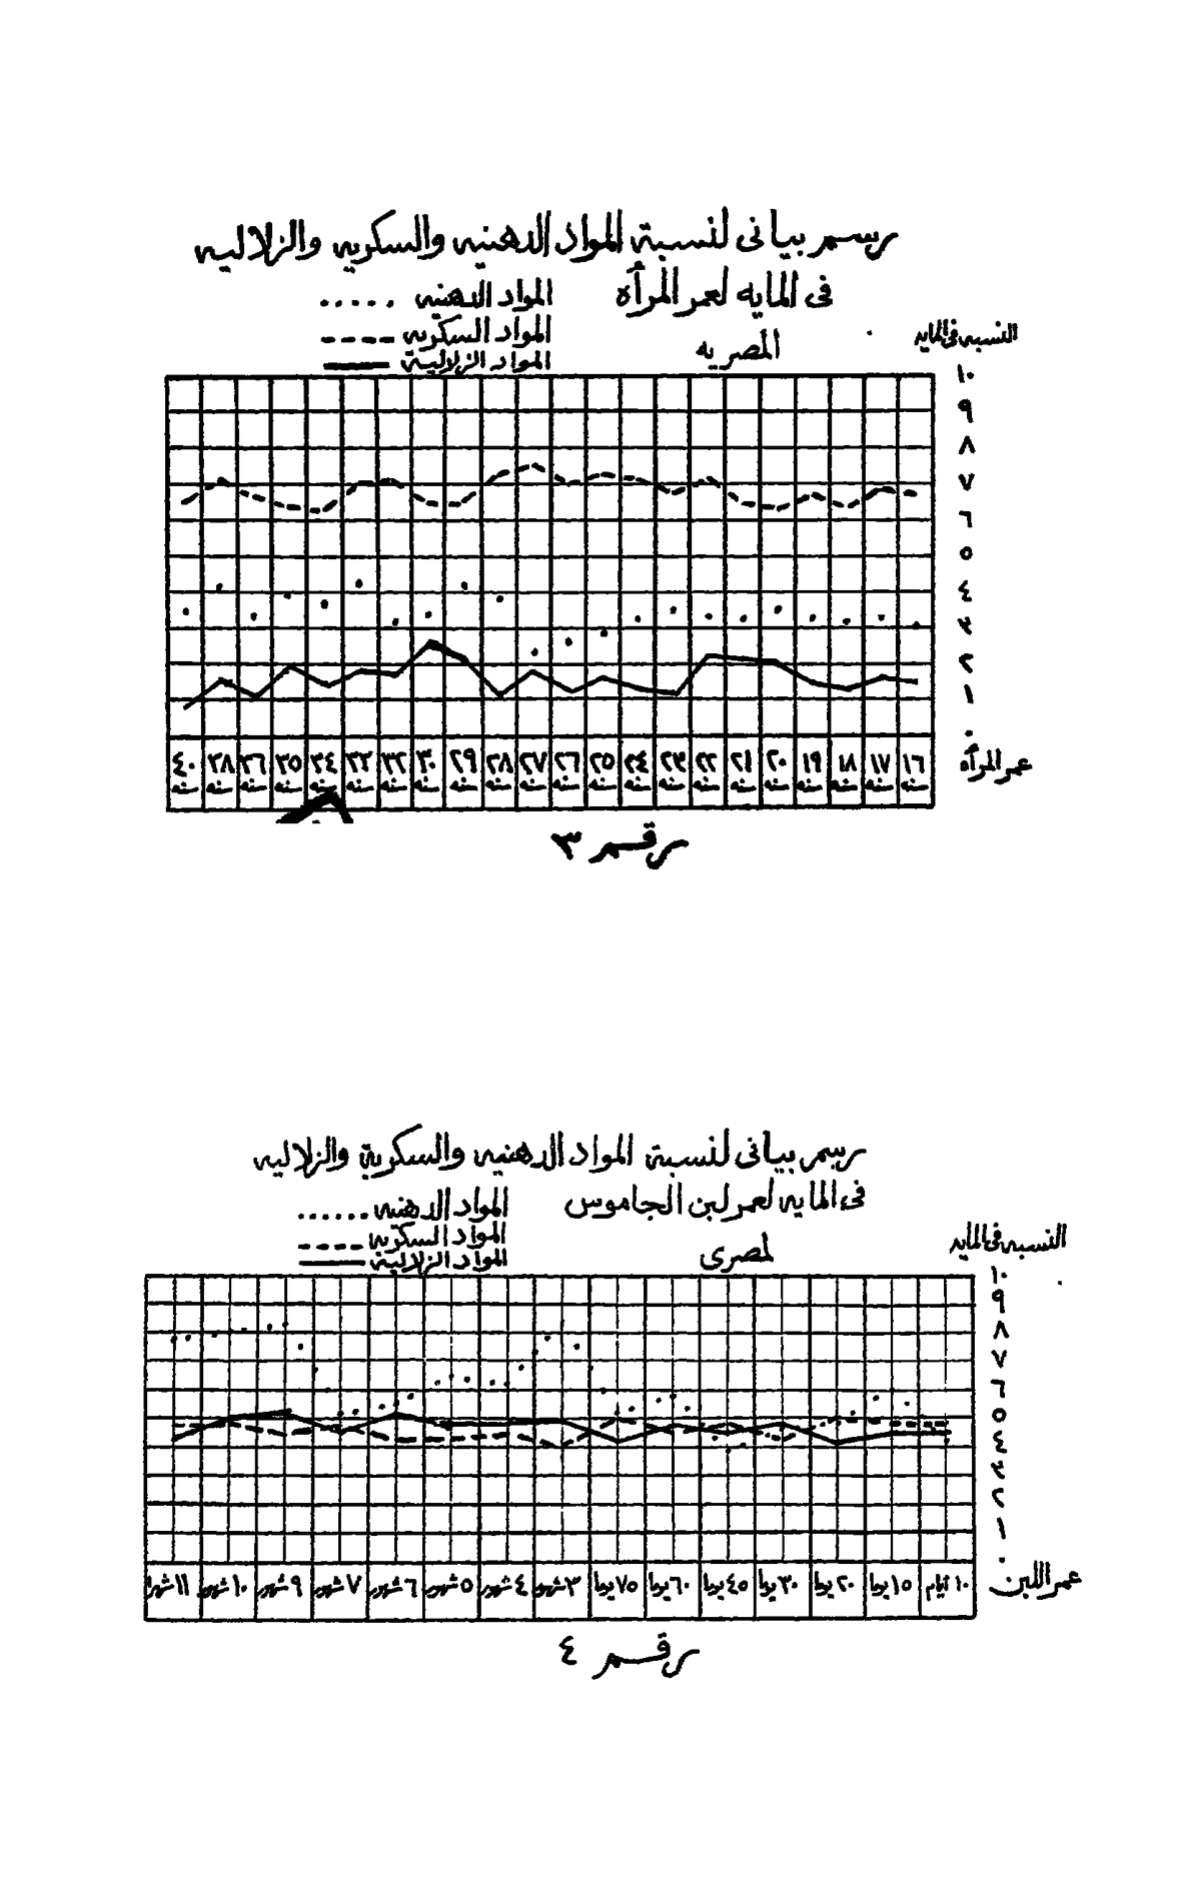 رسم بيانى لنسبة المواد الدهنيه والسكريه والزلاليه
فى المايه لعمر المرأه
المصريه
المواد الدهنيه .....
المواد السكريه ----
المواد الزلالية
النسبه فى المايه
١٠
٩
٨
٧
٦
٥
٤
٣
٢
١
٠
عمر المرأه
١٦ سنه ١٧ سنه ١٨ سنه ١٩ سنه ٢٠ سنه ٢١ سنه ٢٢ سنه ٢٣ سنه ٢٤ سنه ٢٥ سنه ٢٦ سنه ٢٧ سنه ٢٨ سنه ٢٩ سنه ٣٠ سنه ٣٢ سنه ٣٣ سنه ٣٤ سنه ٣٥ سنه ٣٦ سنه ٣٨ سنه ٤٠ سنه
رقم ٣
رسم بيانى لنسبة المواد الدهنيه والسكرية والزلاليه
فى المايه لعمر لبن الجاموس
لمصرى
المواد الدهنيه ......
المواد السكريه ----
المواد الزلالية
النسبه فى المايه
١٠
٩
٨
٧
٦
٥
٤
٣
٢
١
٠
عمر اللبن
١٠ أيام ١٥ يوما ٢٠ يوما ٣٠ يوما ٤٥ يوما ٦٠ يوما ٧٥ يوما ٣ شهور ٤ شهور ٥ شهور ٦ شهور ٧ شهور ٩ شهور ١٠ شهور ١١ شهرا
رقم ٤